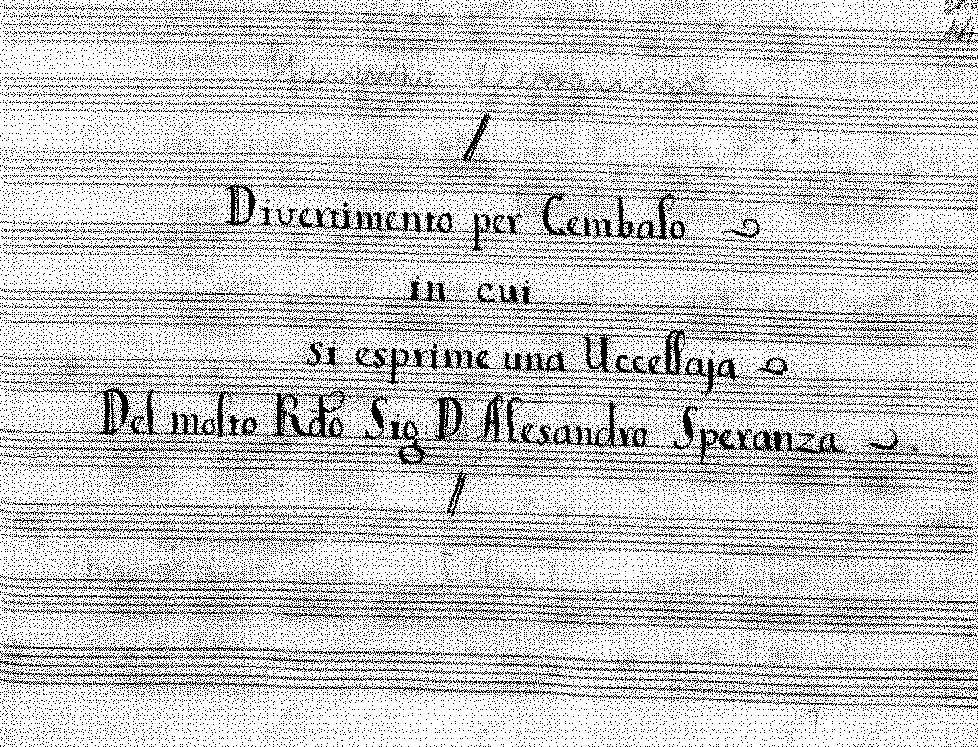 Divertimento per Cembalo
in cui
si esprime una Uccellaja
Del molto Rdo Sig D Alesandro Speranza